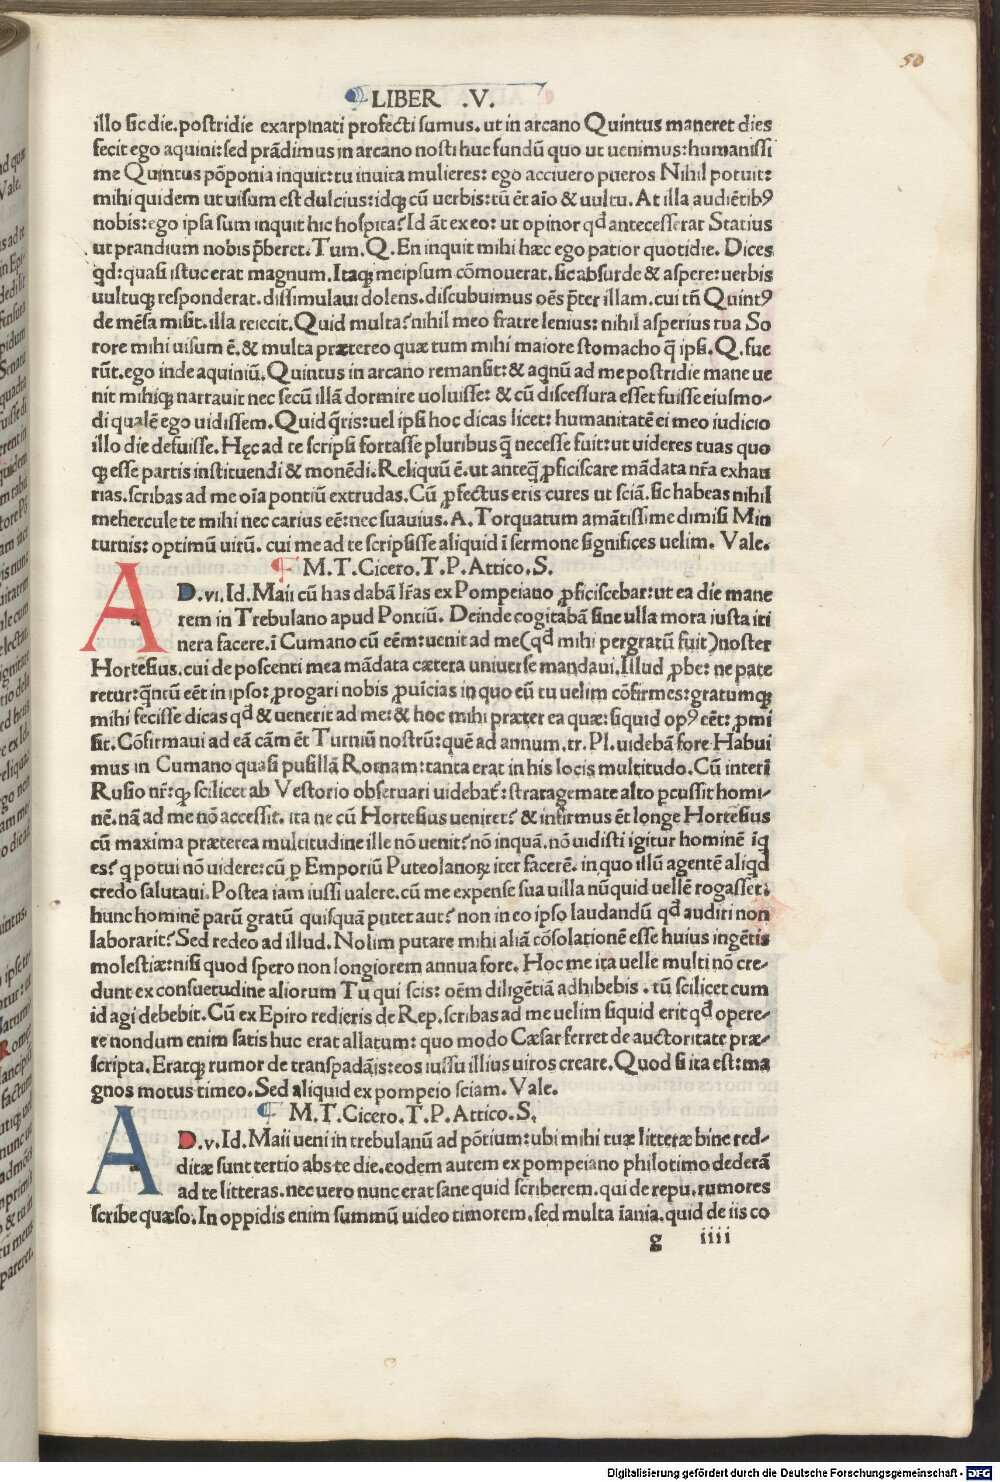 50
LIBER .V.
illo sic die. postridie exarpinati profecti sumus. ut in arcano Quintus maneret dies
fecit ego aquini: sed prādimus in arcano nosti huc fundū quo ut uenimus: humanissi
me Quintus pōponia inquit: tu inuita mulieres: ego acciuero pueros Nihil potuit:
mihi quidem ut uisum est dulcius: idq; cū uerbis: tū ēt aīo & uultu. At illa audiētibꝰ
nobis: ego ipsa sum inquit hic hospita? Id āt ex eo: ut opinor qđ antecesserat Statius
ut prandium nobis p̄beret. Tum. Q. En inquit mihi hæc ego patior quotidie. Dices
qd: quasi istuc erat magnum. Itaq; meipsum cōmouerat. sic absurde & aspere: uerbis
uultuq; responderat. dissimulaui dolens. discubuimus oēs p̄ter illam. cui tn̄ Quintꝰ
de mēsa misit. illa reiecit. Quid multa? nihil meo fratre lenius: nihil asperius tua So
rore mihi uisum ē. & multa prætereo quæ tum mihi maiore stomacho q̄ ipsi. Q. fue
rūt. ego inde aquiniū. Quintus in arcano remansit: & aqnū ad me postridie mane ue
nit mihiq; narrauit nec secū illā dormire uoluisse: & cū discessura esset fuisse eiusmo-
di qualē ego uidissem. Quid q̄ris: uel ipsi hoc dicas licet: humanitatē ei meo iudicio
illo die defuisse. Hęc ad te scripsi fortasse pluribus q̄ necesse fuit: ut uideres tuas quo
q; esse partis instituendi & monēdi. Reliquū ē. ut anteq̄ ꝓficiscare mādata nr̄a exhau
rias. scribas ad me oīa pontiū extrudas. Cū ꝓfectus eris cures ut sciā. sic habeas nihil
mehercule te mihi nec carius eē: nec suauius. A. Torquatum amātissime dimisi Min
turnis: optimū uirū. cui me ad te scripsisse aliquid ī sermone significes uelim. Vale.
¶ M. T. Cicero. T. P. Attico. S.
A D. vi. Id. Maii cū has dabā lr̄as ex Pompeiano ꝓficiscebar: ut ea die mane
rem in Trebulano apud Pontiū. Deinde cogitabā sine ulla mora iusta iti
nera facere. ī Cumano cū eēm: uenit ad me (qđ mihi pergratū fuit) noster
Hortesius. cui deposcenti mea mādata cætera uniuerse mandaui. Illud ꝓbe: ne pate
retur: q̄ntū eēt in ipso: ꝓrogari nobis ꝓuīcias in quo eū tu uelim cōfirmes: gratumq;
mihi fecisse dicas qđ & uenerit ad me: & hoc mihi præter ea quæ: siquid opꝰ cēt: ꝓmi
sit. Cōfirmaui ad eā cām ēt Turniū nostrū: quē ad annum. tr. Pl. uidebā fore Habui
mus in Cumano quasi pusillā Romam: tanta erat in his locis multitudo. Cū interī
Rusio nr̄: q; scilicet ab Vestorio obseruari uidebat̄: stratagemate alto ꝑcussit homi-
nē. nā ad me nō accessit. ita ne cū Hortesius ueniret? & infirmus ēt longe Hortesius
cū maxima præterea multitudine ille nō uenit? nō inquā. nō uidisti igitur hominē īq
es? q potui nō uidere: cū ꝑ Emporiū Puteolanoꝝ iter facerē. in quo illū agentē aliqđ
credo salutaui. Postea iam iussi ualere. cū me expense sua uilla nūquid uellē rogasset.
hunc hominē parū gratū quisquā putet aut? non in eo ipso laudandū qđ audiri non
laborarit? Sed redeo ad illud. Nolim putare mihi aliā cōsolationē esse huius ingētis
molestiæ: nisi quod spero non longiorem annua fore. Hoc me ita uelle multi nō cre-
dunt ex consuetudine aliorum Tu qui scis: oēm diligētiā adhibebis. tū scilicet cum
id agi debebit. Cū ex Epiro redieris de Rep. scribas ad me uelim siquid erit qđ opere-
re nondum enim satis huc erat allatum: quo modo Cæsar ferret de auctoritate præ-
scripta. Eratq; rumor de transpadāis: eos iussu illius uiros creare. Quod si ita est: ma
gnos motus timeo. Sed aliquid ex pompeio sciam. Vale.
¶ M. T. Cicero. T. P. Attico. S.
A D. v. Id. Maii ueni in trebulanū ad pōtium: ubi mihi tuæ litteræ bine red-
ditæ sunt tertio abs te die. eodem autem ex pompeiano philotimo dederā
ad te litteras. nec uero nunc erat sane quid scriberem. qui de repu. rumores
scribe quæso. In oppidis enim summū uideo timorem. sed multa īania. quid de iis co
g iiii
Digitalisierung gefördert durch die Deutsche Forschungsgemeinschaft - DFG